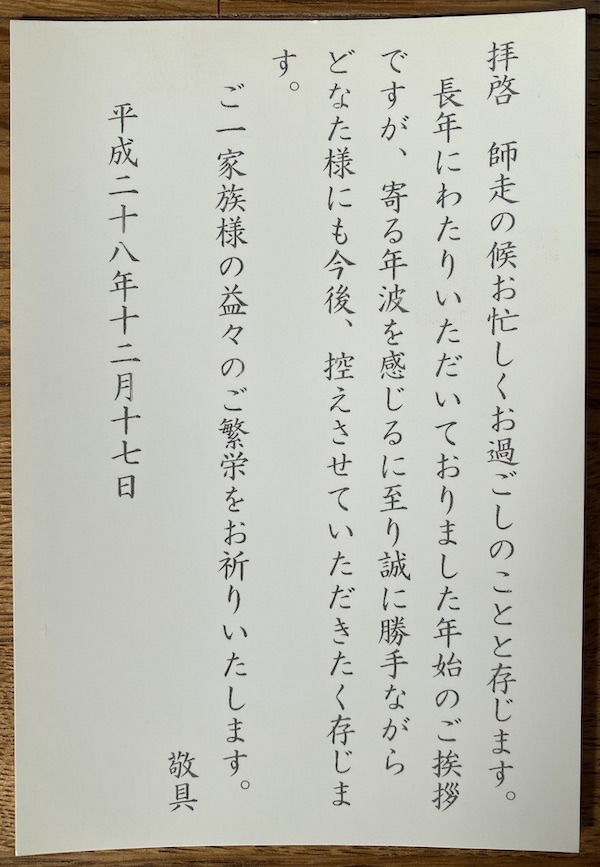 拝啓　師走の候お忙しくお過ごしのことと存じます。
長年にわたりいただいておりました年始のご挨拶
ですが、寄る年波を感じるに至り誠に勝手ながら
どなた様にも今後、控えさせていただきたく存じま
す。
ご一家族様の益々のご繁栄をお祈りいたします。
敬具
平成二十八年十二月十七日